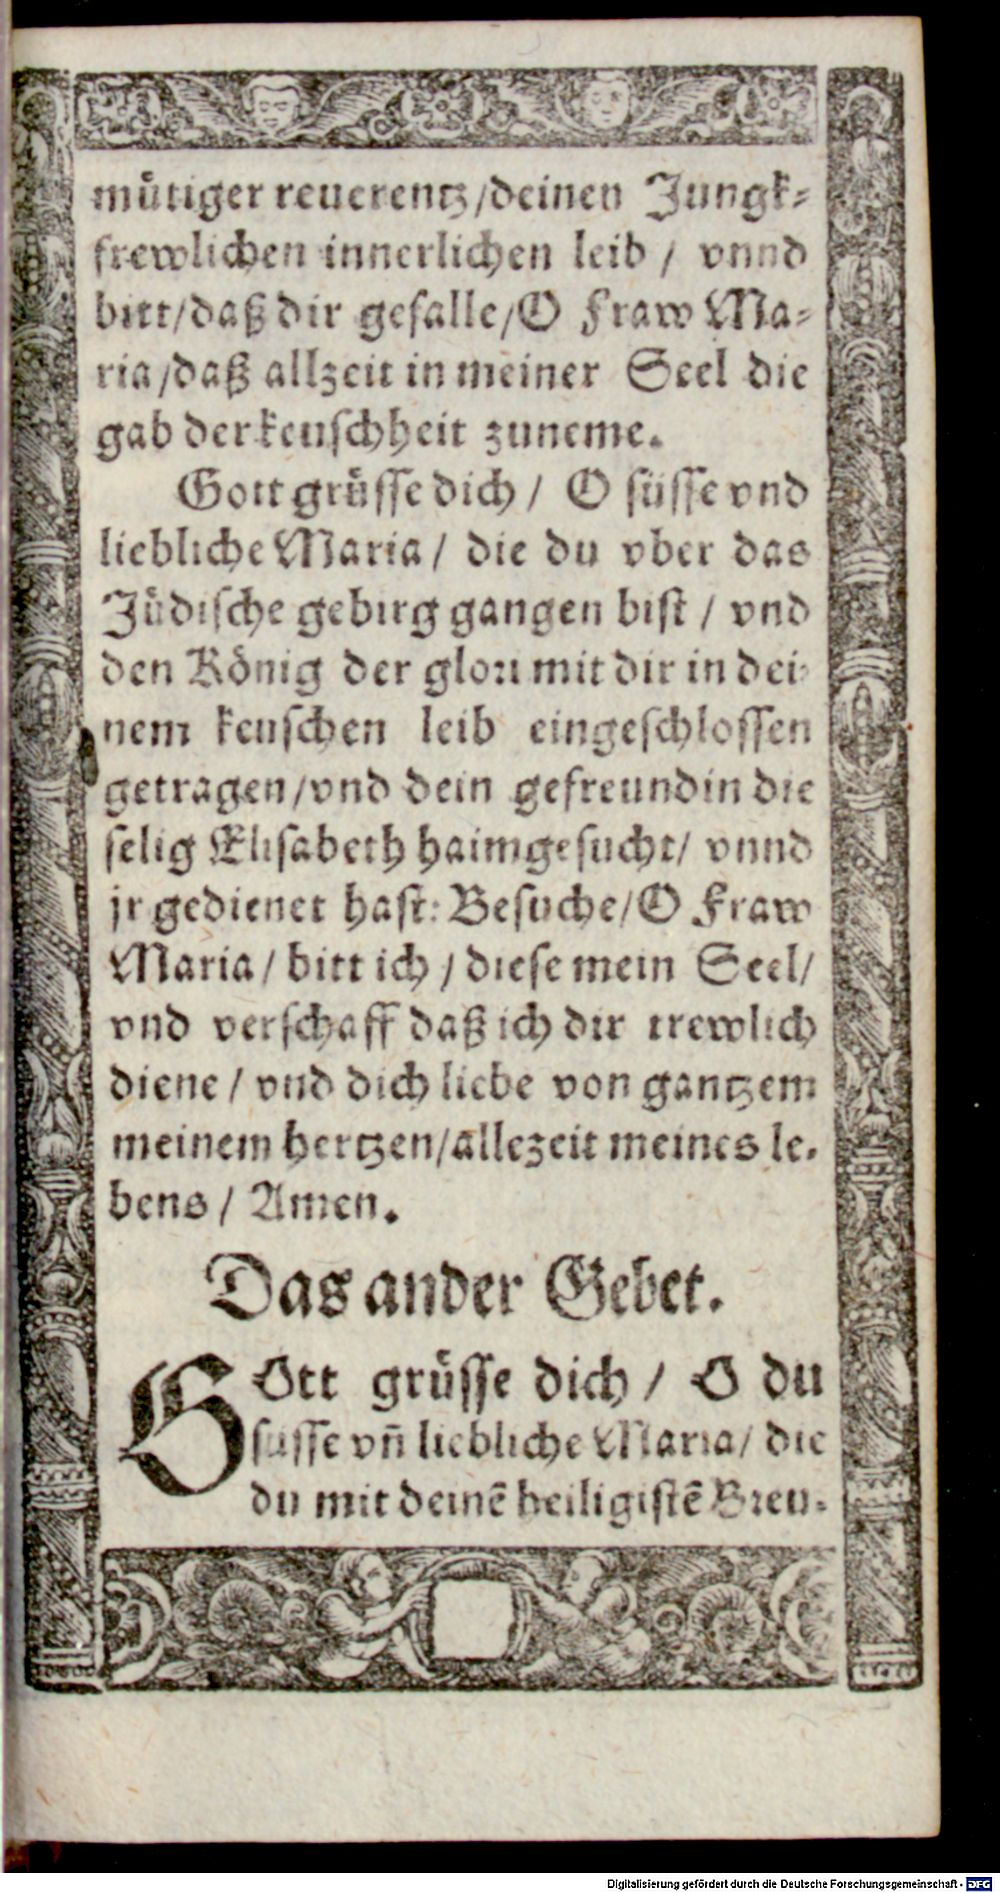 mütiger reuerentz/deinen Jungk-
frewlichen innerlichen leib / vnnd
bitt/daß dir gefalle/O Fraw Ma-
ria/daß allzeit in meiner Seel die
gab der keuschheit zuneme.
Gott grüsse dich / O süsse vnd
liebliche Maria / die du vber das
Jüdische gebirg gangen bist / vnd
den König der glori mit dir in dei-
nem keuschen leib eingeschlossen
getragen/vnd dein gefreundin die
selig Elisabeth haimgesucht/ vnnd
jr gedienet hast: Besuche/O Fraw
Maria/ bitt ich / diese mein Seel/
vnd verschaff daß ich dir trewlich
diene / vnd dich liebe von gantzem
meinem hertzen/allezeit meines le-
bens / Amen.
Das ander Gebet.
GOtt grüsse dich / O du
süsse vn̄ liebliche Maria/ die
du mit deinē heiligistē Breu-
Digitalisierung gefördert durch die Deutsche Forschungsgemeinschaft - DFG